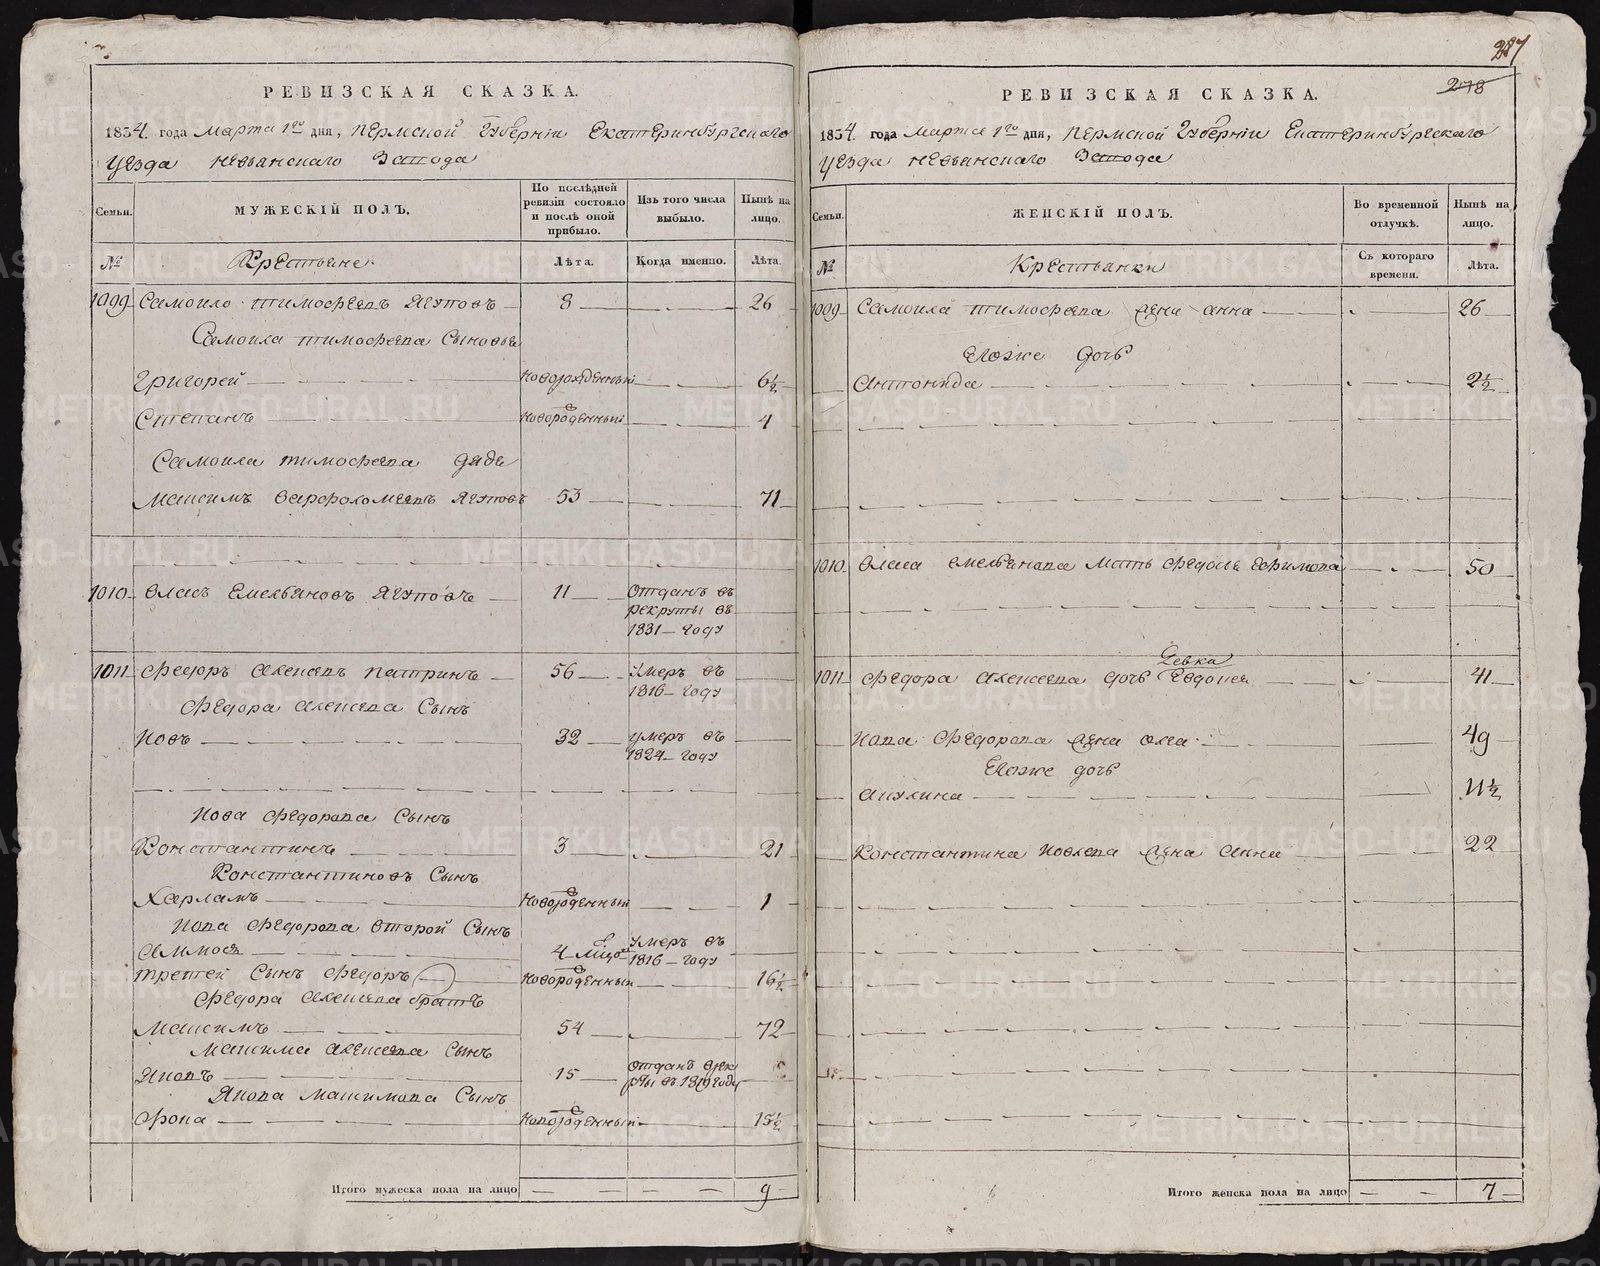 РЕВИЗСКАЯ СКАЗКА.
1834. года Марта 1го дня, Пермской Губернiи Екатеринбургскаго
Уезда Невьянскаго Завода
Семьи.
МУЖЕСКIЙ ПОЛЪ.
По послѣдней ревизiи состояло и послѣ оной прибыло.
Изъ того числа выбыло.
Нынѣ на лицо.
№
Крестьяне
Лѣта.
Когда именно.
Лѣта.
1009 Самоило Тимофеевъ Ягуповъ 8 26
Самоила Тимофеева Сыновья
Григорей Новорожденный 6½
Степанъ Новорожденный 4
Самоила Тимофеева дядя
Максимъ Варфоломеевъ Ягуповъ 53 71
1010 Власъ Емельяновъ Ягуповъ 11 Отданъ въ
рекруты въ
1831 году
1011 Федоръ Алексеевъ Патринъ 56 Умеръ въ
1816 году
Федора Алексеева Сынъ
Иовъ 32 умеръ въ
1824 году
Иова Федорова Сынъ
Константинъ 3 21
Константиновъ Сынъ
Харламъ Новорожденный 1
Иова Федорова второй Сынъ
4 Умеръ въ
1816 году
третей Сынъ Федоръ Новорожденный 16½
Федора Алексеева братъ
Максимъ 54 72
Максима Алексеева Сынъ
Яковъ 15 отданъ в рек
руты въ 1819 году
Якова Максимова Сынъ
Фрона Новорожденный 15½
Итого мужеска пола на лицо 9
287
278
РЕВИЗСКАЯ СКАЗКА.
1834. года Марта 1го дня, Пермской Губернiи Екатеринбургскаго
Уезда Невьянскаго Завода
Семьи.
ЖЕНСКIЙ ПОЛЪ.
Во временной отлучкѣ.
Нынѣ на лицо.
№
Крестьянки
Съ котораго времени.
Лѣта.
1009 Самоила Тимофеева жена Анна 26
Егоже дочь
Антонида 2½
1010 Власа Емельянова Мать Федосья Ефимова 50
Девка
1011 Федора Алексеева дочь Евдокея 41
Иова Федорова жена 49
Егоже дочь
Акулина 11½
Константина Иовлева жена Анна 22
Итого женска пола на лицо 7
METRIKI.GASO-URAL.RU